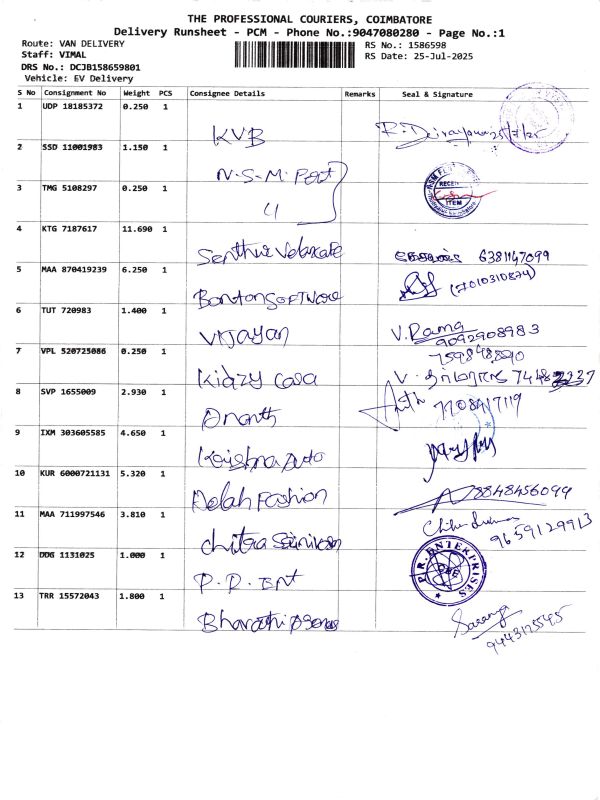 THE PROFESSIONAL COURIERS, COIMBATORE
Delivery Runsheet - PCM - Phone No.:9047080280 - Page No.:1
Route: VAN DELIVERY
RS No.: 1586598
Staff: VIMAL
RS Date: 25-Jul-2025
DRS No.: DCJB158659801
Vehicle: EV Delivery
S No Consignment No Weight PCS Consignee Details Remarks Seal & Signature
1 UDP 18185372 0.250 1 KVB 25/7/25
2 SSD 11001983 1.150 1 N.S.M. RECEI ITEM
3 TMG 5108297 0.250 1 4
4 KTG 7187617 11.690 1 Senthur 6381147099
5 MAA 870419239 6.250 1 Bonton SOFTWare (7010310874)
6 TUT 720983 1.400 1 Vijayan V. Rama 9092908983
7 VPL 520725086 0.250 1 Kidzy Casa V.
8 SVP 1655009 2.930 1 Ananth 7708417119
9 IXM 303605585 4.650 1 Krishna Auto
10 KUR 6000721131 5.320 1 Fashion 8848456099
11 MAA 711997546 3.810 1 Chitra 9659129913
12 DDG 1131025 1.000 1 P.R. Ent P.R. ENTERPRISES
13 TRR 15572043 1.800 1 Bharathi Saranya